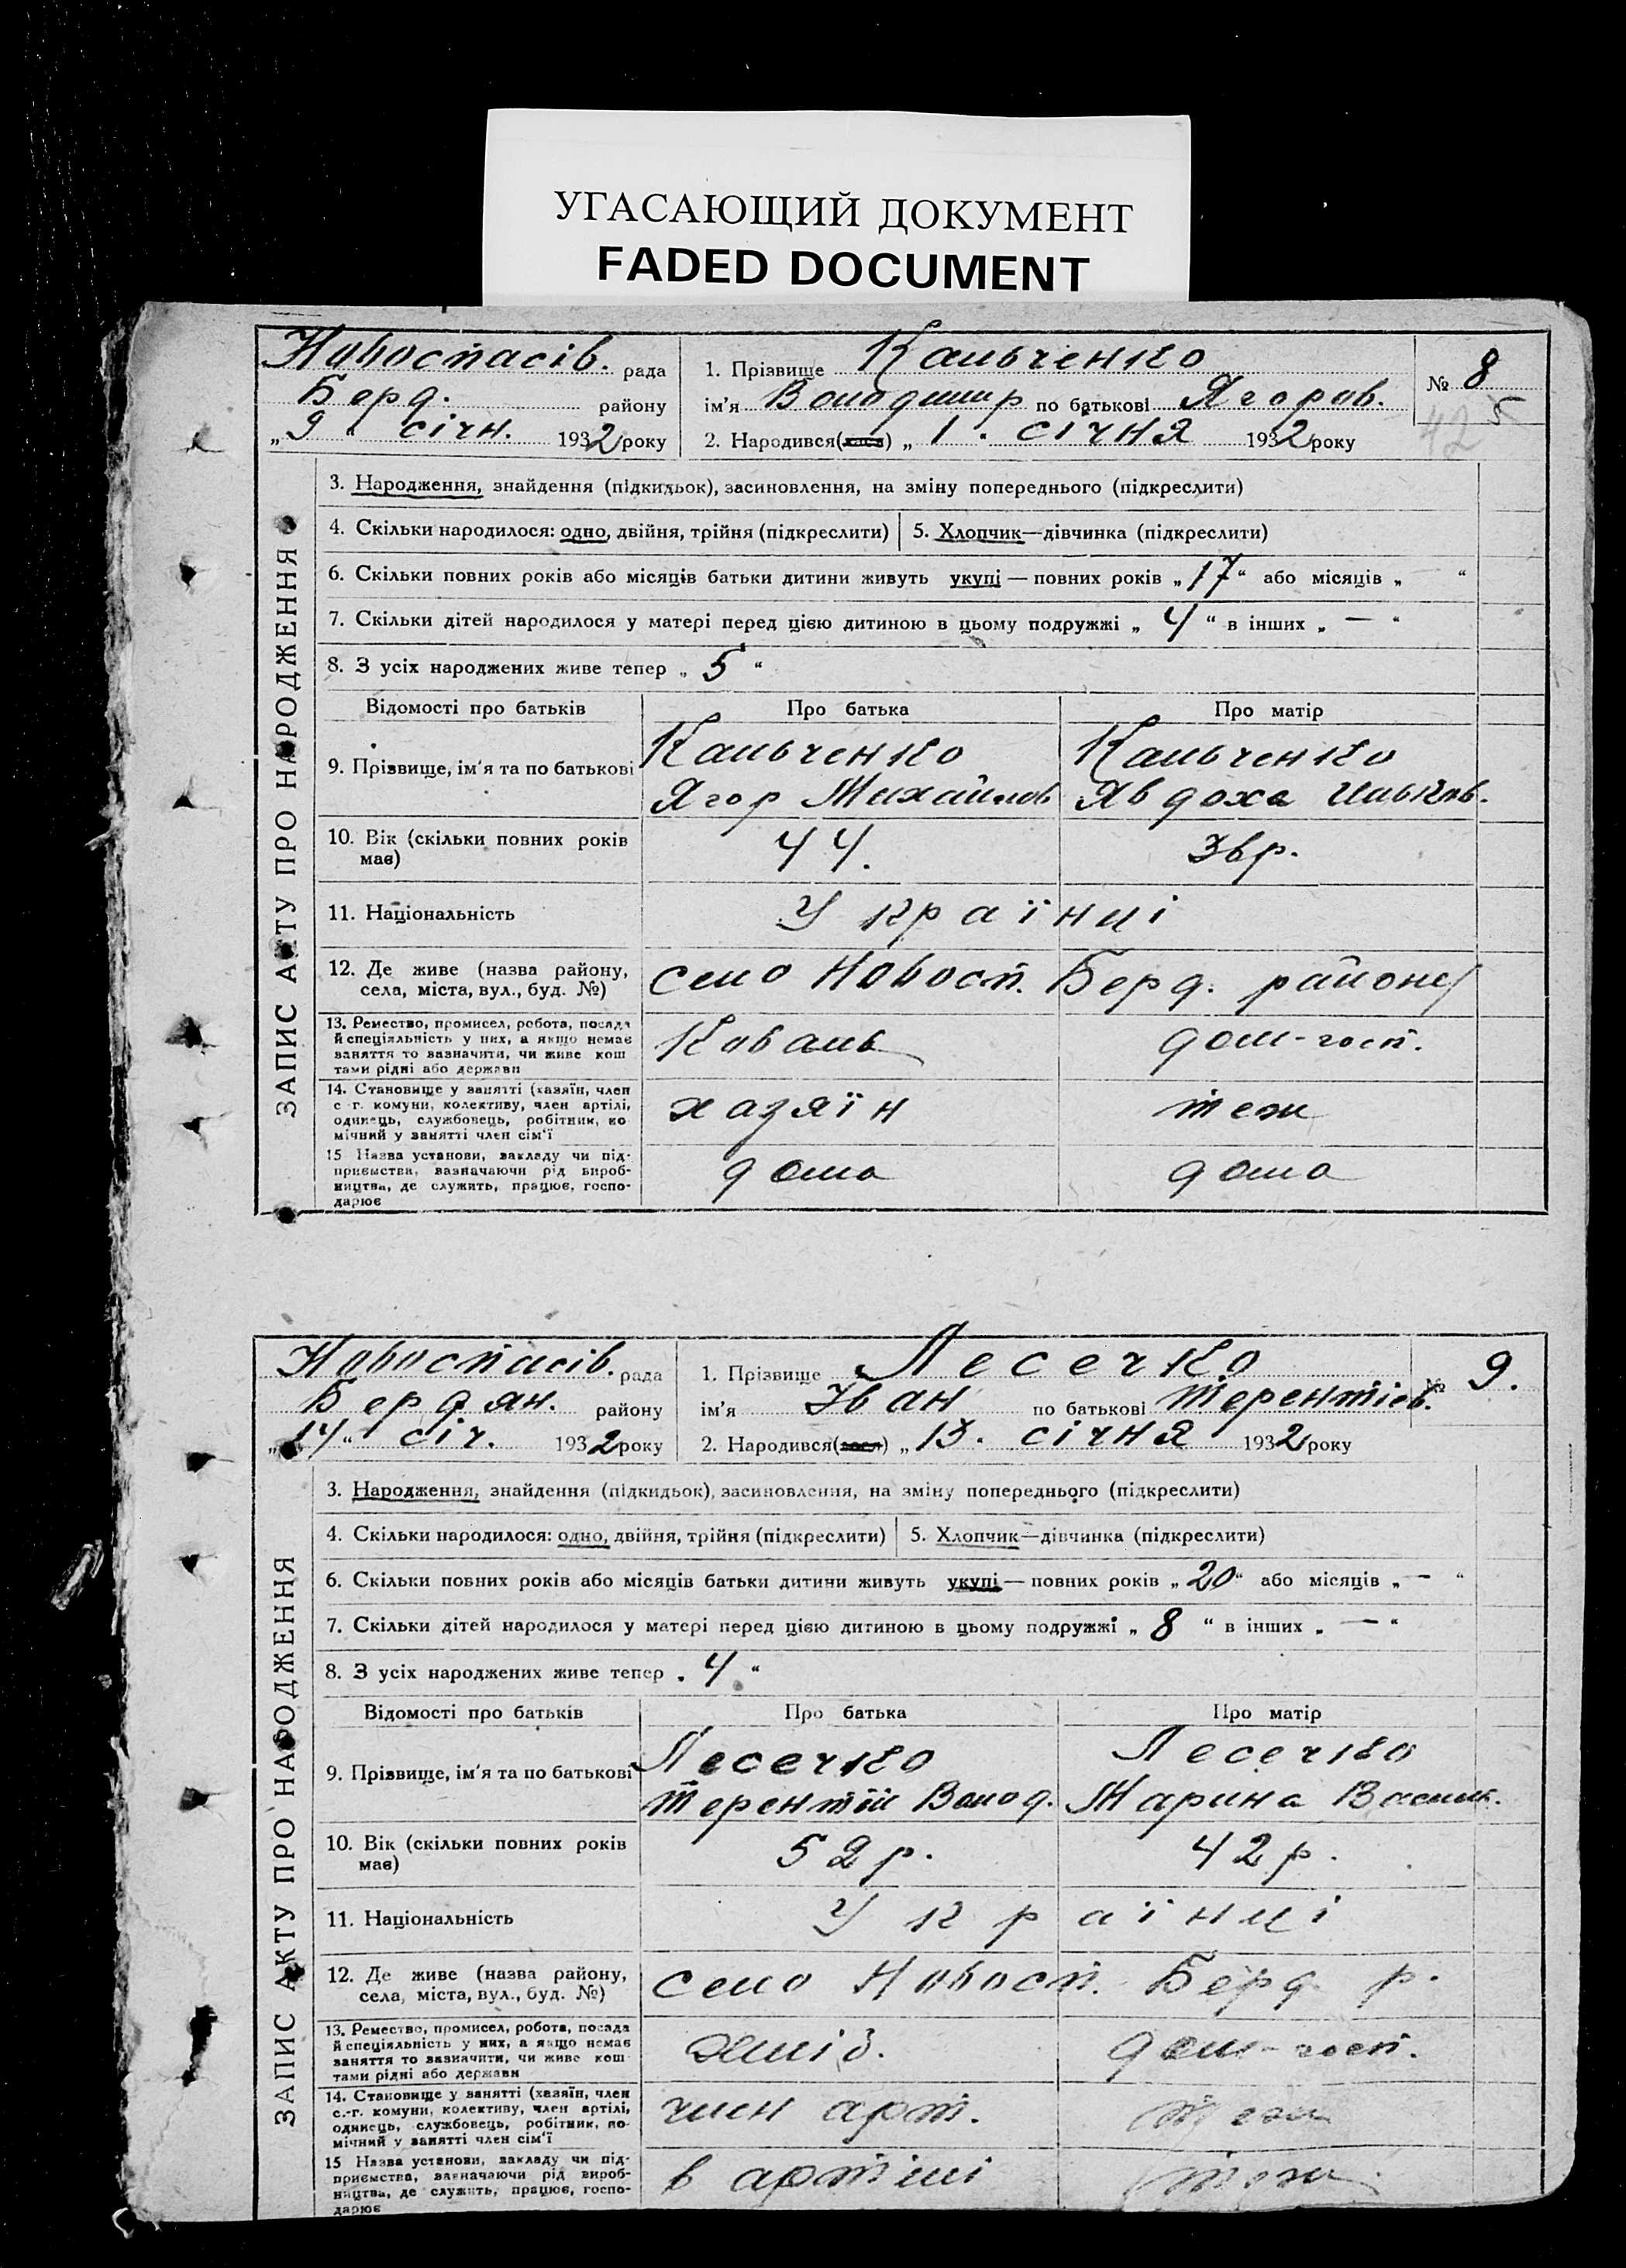 УГАСАЮЩИЙ ДОКУМЕНТ
FADED DOCUMENT
ЗАПИС АКТУ ПРО НАРОДЖЕННЯ
Новоспасів. рада
Берд. району
„9“ січн. 1932 року
1. Прізвище Кальченко
ім'я Володимир по батькові Ягоров.
2. Народився(лася) „1. січня 1932 року
№ 8
5
42
3. Народження, знайдення (підкидьок), засиновлення, на зміну попереднього (підкреслити)
4. Скільки народилося: одно, двійня, трійня (підкреслити) 5. Хлопчик—дівчинка (підкреслити)
6. Скільки повних років або місяців батьки дитини живуть укупі — повних років „17“ або місяців „ “
7. Скільки дітей народилося у матері перед цією дитиною в цьому подружжі „4“ в інших „—“
8. З усіх народжених живе тепер „5“
Відомості про батьків Про батька Про матір
9. Прізвище, ім'я та по батькові
Кальченко Кальченко
Ягор Михайлов Явдоха
10. Вік (скільки повних років має) 44. 36р.
11. Національність Українці
12. Де живе (назва району, села, міста, вул., буд. №) село Новосп. Берд. району
13. Ремество, промисел, робота, посада
й спеціяльність у них, а якщо немає
заняття то зазначити, чи живе кош
тами рідні або держави
Коваль дом-госп.
14. Становище у занятті (хазяїн, член
с-г. комуни, колективу, член артілі,
одинець, службовець, робітник, по
мічний у занятті член сім'ї
хазяїн теж
15 Назва установи, закладу чи під-
приємства, зазначаючи рід вироб-
ництва, де служить, працює, госпо-
дарює
дома дома
ЗАПИС АКТУ ПРО НАРОДЖЕННЯ
Новоспасів. рада
Бердян. району
„14“ січ. 1932 року
1. Прізвище Лесечко
ім'я Іван по батькові Терентіев.
2. Народився(лася) „13. січня 1932 року
№ 9.
3. Народження, знайдення (підкидьок), засиновлення, на зміну попереднього (підкреслити)
4. Скільки народилося: одно, двійня, трійня (підкреслити) 5. Хлопчик—дівчинка (підкреслити)
6. Скільки повних років або місяців батьки дитини живуть укупі — повних років „20“ або місяців „—“
7. Скільки дітей народилося у матері перед цією дитиною в цьому подружжі „8“ в інших „—“
8. З усіх народжених живе тепер „4“
Відомості про батьків Про батька Про матір
9. Прізвище, ім'я та по батькові
Лесечко Лесечко
Терентій Волод. Марина Васильє.
10. Вік (скільки повних років має) 52р. 42р.
11. Національність Українці
12. Де живе (назва району, села, міста, вул., буд. №) село Новосп. Берд р.
13. Ремество, промисел, робота, посада
й спеціяльність у них, а якщо немає
заняття то зазначити, чи живе кош
тами рідні або держави
хліб. дом-госп.
14. Становище у занятті (хазяїн, член
с.-г. комуни, колективу, член артілі,
одинець, службовець, робітник, по-
мічний у занятті член сім'ї
член арт. теж
15 Назва установи, закладу чи під-
приємства, зазначаючи рід вироб-
ництва, де служить, працює, госпо-
дарює
в артілі теж